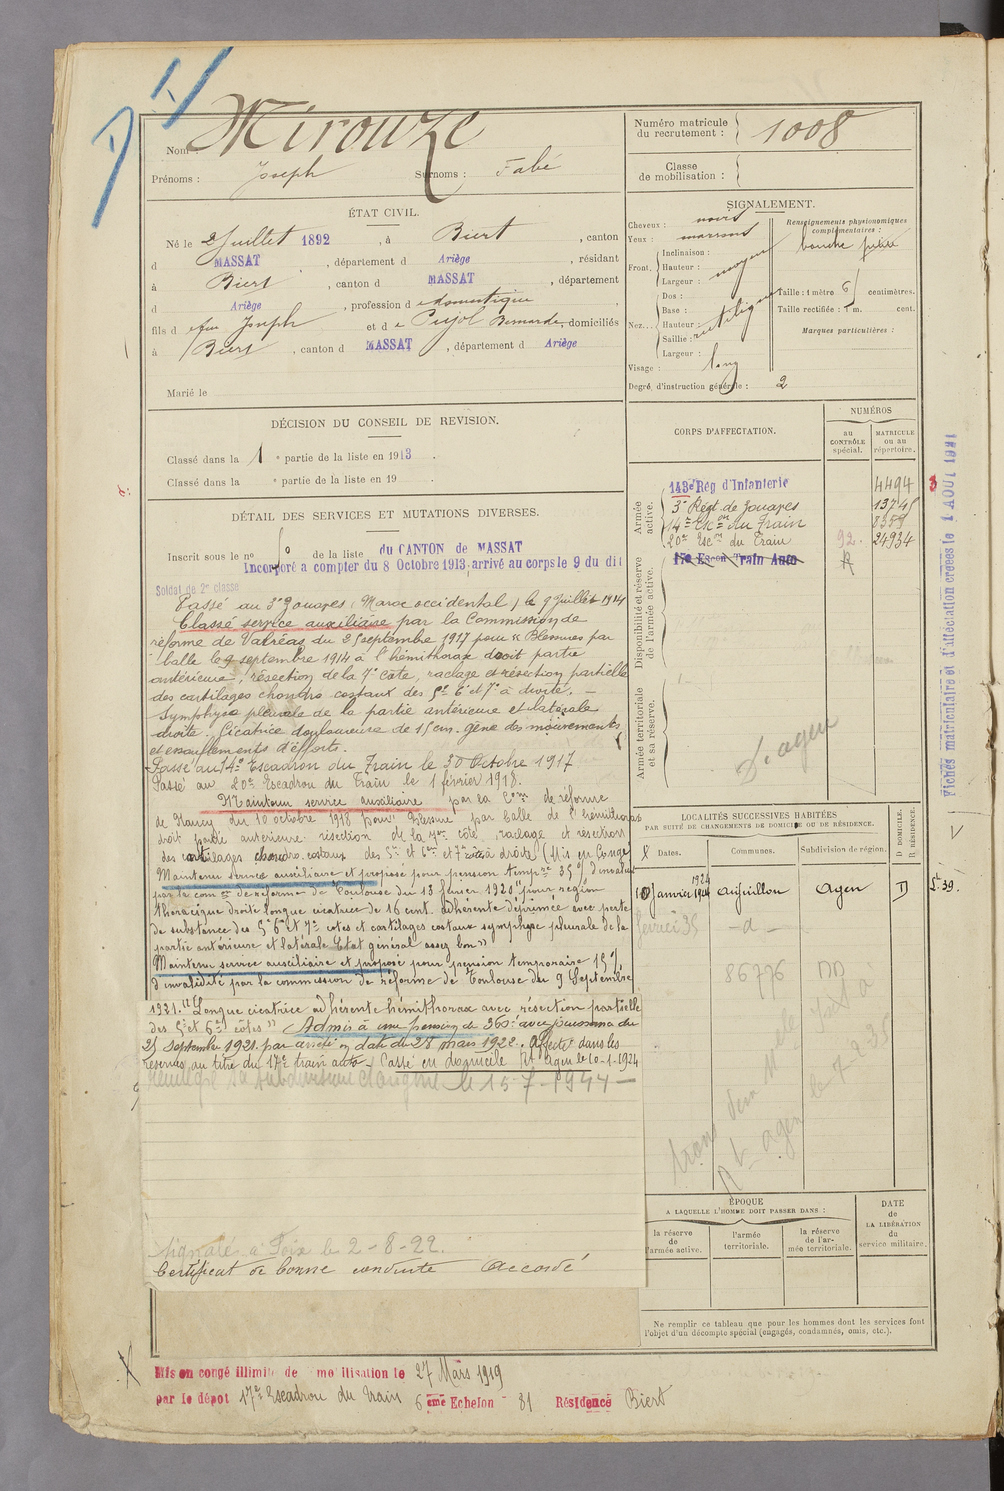 Nom : Mirouze
Prénoms : Joseph Surnoms : Fabé
Numéro matricule du recrutement : 1008
Classe de mobilisation :
ÉTAT CIVIL.
Né le 2 Juillet 1892, à Biert, canton
d MASSAT, département d Ariège, résidant
à Biert, canton d MASSAT, département
d Ariège, profession de domestique,
fils de feu Joseph et de Pujol Bernarde, domiciliés
à Biert, canton d MASSAT, département d Ariège
Marié le
SIGNALEMENT.
Cheveux : noirs
Yeux : marrons
Front. Inclinaison :
Hauteur : moyen
Largeur :
Nez... Dos :
Base :
Hauteur : rectiligne
Saillie :
Largeur :
Visage : long
Degré d'instruction générale : 2
Renseignements physionomiques complémentaires :
bouche petite
Taille : 1 mètre 61 centimètres.
Taille rectifiée : 1 m. cent.
Marques particulières :
DÉCISION DU CONSEIL DE REVISION.
Classé dans la 1 e partie de la liste en 1913.
Classé dans la e partie de la liste en 19
DÉTAIL DES SERVICES ET MUTATIONS DIVERSES.
Inscrit sous le no de la liste du CANTON de MASSAT
Incorporé a compter du 8 Octobre 1913, arrivé au corps le 9 du dit
Soldat de 2e classe
Passé au 3e Zouaves (Maroc occidental) le 9 Juillet 1914
Classé service auxiliaire par la Commission de
réforme de Valréas du 25 septembre 1917 pour "Blessures par
balle le 9 septembre 1914 à l'hémithorax droit partie
antérieure, résection de la 7e côte, raclage et résection partielle
des cartilages chondro costaux des 5e 6e et 7e à droite. —
Symphyse pleurale de la partie antérieure et latérale
droite. Cicatrice douloureuse de 15 cm. Gêne des mouvements
et essouflements d'efforts.
Passé au 14e Escadron du Train le 30 Octobre 1917
Passé au 20e Escadron du Train le 1 février 1918.
Maintenu service auxiliaire par la Com de réforme
de Nancy du 10 octobre 1918 pour Blessure par balle de l'hémithorax
droit partie antérieure résection de la 7me côte, raclage et résection
des cartilages chondro costaux des 5e et 6me et 7e côte à droite (Mis en Congé
Maintenu service auxiliaire et proposé pour pension tempre 35% d'invalidité
par la comon de réforme de Toulouse du 13 février 1920 pour région
thoracique droite longue cicatrice de 16 cent. adhérente déprimée avec perte
de substance des 5e 6e et 7e cotes et cartilages costaux symphyse pleurale de la
partie antérieure et latérale Etat général assez bon"
Maintenu service auxiliaire et proposé pour pension temporaire 15%
d'invalidité par la commission de réforme de Toulouse du 9 Septembre
1921. "Longue cicatrice adhérente hémithorax avec résection partielle
des 5e et 6e côtes" Admis à une pension de 360f avec jouissance du
25 septembre 1921. par arrêté en date du 28 mars 1922. Affecté dans les
réserves au titre du 17e train auto. Passé en domicile Rt Agen le 10-1-1924
le 15-7-1944 —
Signalé à Foix le 2-8-22.
Certificat de bonne conduite Accordé
CORPS D'AFFECTATION.
NUMÉROS
AU CONTRÔLE spécial.
MATRICULE ou au répertoire.
Armée active.
143e Rég d'Infanterie 4494
3e Régt de Zouaves 13745
14e Eson du Train
20e Escon du Train 92 24934
17e Escon Train Auto R
Disponibilité et réserve de l'armée active.
Armée territoriale et sa réserve.
D. agen
LOCALITÉS SUCCESSIVES HABITÉES
PAR SUITE DE CHANGEMENTS DE DOMICILE OU DE RÉSIDENCE.
Dates. Communes. Subdivision de région.
D DOMICILE. R RÉSIDENCE.
10 Janvier 1924 Aiguillon Agen D
février 35 — d —
86776
Rt agen le 7 2 35
ÉPOQUE
A LAQUELLE L'HOMME DOIT PASSER DANS :
la réserve de l'armée active.
l'armée territoriale.
la réserve de l'armée territoriale.
DATE de LA LIBÉRATION du service militaire.
Ne remplir ce tableau que pour les hommes dont les services font
l'objet d'un décompte spécial (engagés, condamnés, omis, etc.).
Mis en congé illimité de démobilisation le 27 Mars 1919
par le dépot 17e Escadron du train 6eme Echelon - 81 Résidence Biert
Fiches matriculaire et d'affectation créées le 1 AOUT 1921